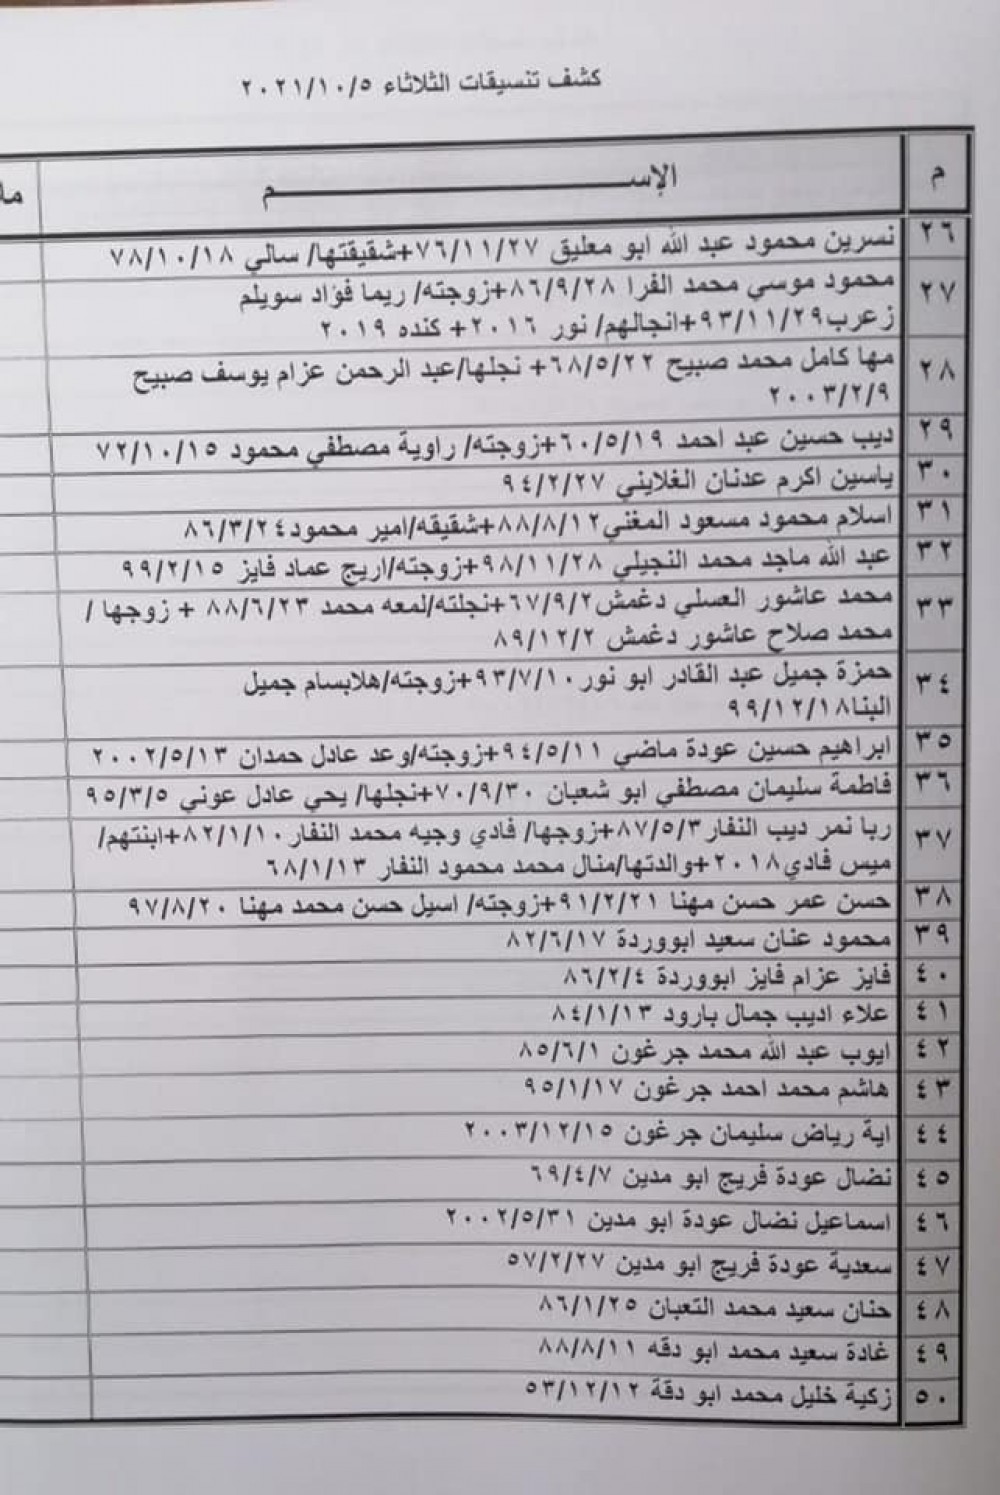 كشف تنسيقات الثلاثاء ٢٠٢١/١٠/٥
م الإســـــــــم ملا
٢٦ نسرين محمود عبد الله ابو معليق ٧٦/١١/٢٧+شقيقتها/ سالي ٧٨/١٠/١٨
٢٧ محمود موسي محمد الفرا ٨٦/٩/٢٨+زوجته/ ريما فؤاد سويلم
زعرب٩٣/١١/٢٩+انجالهم/ نور ٢٠١٦+ كنده ٢٠١٩
٢٨ مها كامل محمد صبيح ٦٨/٥/٢٢+ نجلها/عبد الرحمن عزام يوسف صبيح
٢٠٠٣/٢/٩
٢٩ ديب حسين عبد احمد ٦٠/٥/١٩+زوجته/ راوية مصطفي محمود ٧٢/١٠/١٥
٣٠ ياسين اكرم عدنان الغلاييني ٩٤/٢/٢٧
٣١ اسلام محمود مسعود المغني٨٨/٨/١٢+شقيقه/امير محمود٨٦/٣/٢٤
٣٢ عبد الله ماجد محمد النجيلي ٩٨/١١/٢٨+زوجته/اريج عماد فايز ٩٩/٢/١٥
٣٣ محمد عاشور العسلي دغمش٦٧/٩/٢+نجلته/لمعه محمد ٨٨/٦/٢٣ + زوجها /
محمد صلاح عاشور دغمش ٨٩/١٢/٢
٣٤ حمزة جميل عبد القادر ابو نور٩٣/٧/١٠+زوجته/هلابسام جميل
البنا٩٩/١٢/١٨
٣٥ ابراهيم حسين عودة ماضي ٩٤/٥/١١+زوجته/وعد عادل حمدان ٢٠٠٢/٥/١٣
٣٦ فاطمة سليمان مصطفي ابو شعبان ٧٠/٩/٣٠+نجلها/ يحي عادل عوني ٩٥/٣/٥
٣٧ ربا نمر ديب النفار٨٧/٥/٣+زوجها/ فادي وجيه محمد النفار٨٢/١/١٠+ابنتهم/
ميس فادي٢٠١٨+والدتها/منال محمد محمود النفار ٦٨/١/١٣
٣٨ حسن عمر حسن مهنا ٩١/٢/٢١+زوجته/ اسيل حسن محمد مهنا ٩٧/٨/٢٠
٣٩ محمود عنان سعيد ابووردة ٨٢/٦/١٧
٤٠ فايز عزام فايز ابووردة ٨٦/٢/٤
٤١ علاء اديب جمال بارود ٨٤/١/١٣
٤٢ ايوب عبد الله محمد جرغون ٨٥/٦/١
٤٣ هاشم محمد احمد جرغون ٩٥/١/١٧
٤٤ اية رياض سليمان جرغون ٢٠٠٣/١٢/١٥
٤٥ نضال عودة فريج ابو مدين ٦٩/٤/٧
٤٦ اسماعيل نضال عودة ابو مدين ٢٠٠٢/٥/٣١
٤٧ سعدية عودة فريج ابو مدين ٥٧/٢/٢٧
٤٨ حنان سعيد محمد التعبان ٨٦/١/٢٥
٤٩ غادة سعيد محمد ابو دقه ٨٨/٨/١١
٥٠ زكية خليل محمد ابو دقة ٥٣/١٢/١٢